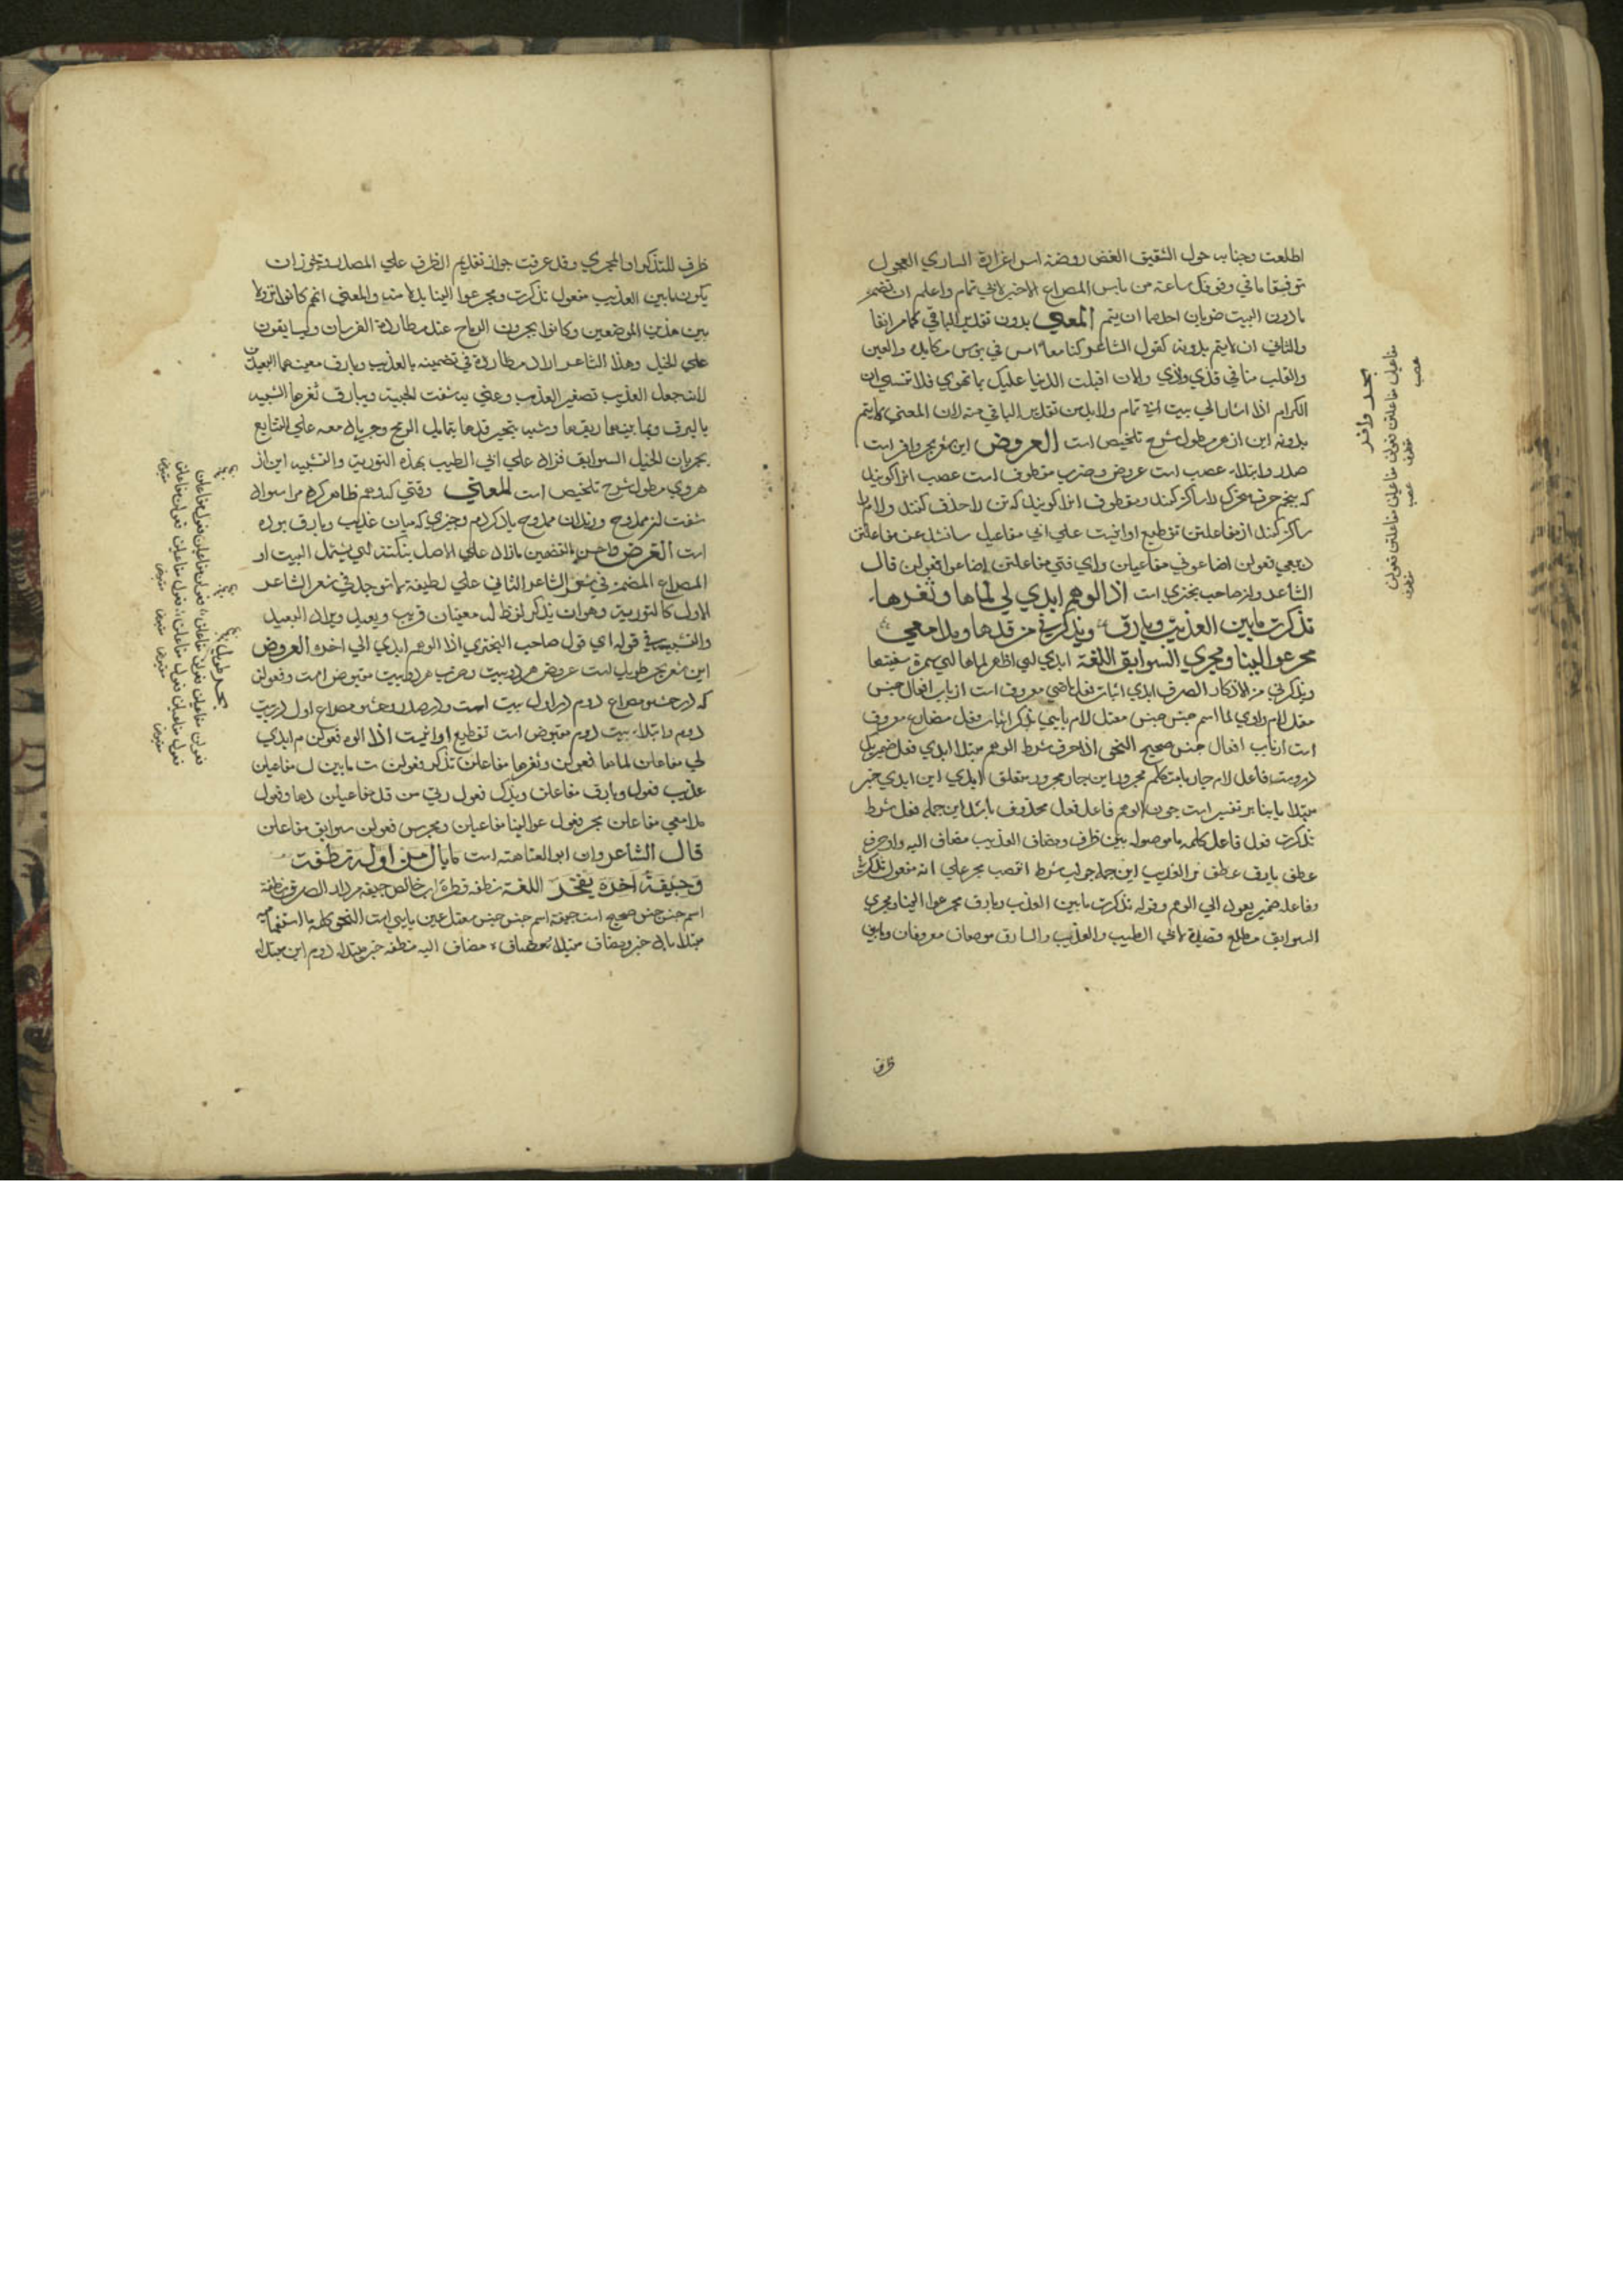 اطلعت وجناته حول الشقيق الغض روضة اس اغزارة الساري العجول
توقف ما في وقوفك ساعة من باس المصراع الاخير لابي تمام واعلم ان تضمين
مادون البيت ضربان احدهما ان يتم المعني بدون تقدير الباقي كما مر انفا
والثاني ان لايتم بدونه كقول الشاعر كنا معا امس في بؤس نكابده والعين
والقلب منا في قذي واذي والان اقبلت الدنيا عليك بما تهوي فلا تنسي ان
الكرام اذا اشار الي بيت ابي تمام ولابد من تقدير الباقي منه لان المعني لايتم
بدونه اين از مطول شرح تلخيص است العروض اين شعر بحر وافر است
صدر وابتداء عصب است عروض وضرب مقطوف است عصب انرا كويند
كه پنجم حرف متحرك را ساكن كنند ومقطوف انرا كويند كه تن را حذف كنند ولام را
ساكن كنند از مفاعلتن تقطيع او اينست علي اني مفاعيل سانشد عن مفاعلتن
دبيعي فعولن اضاعوني مفاعيلن واي فتي مفاعلتن اضاعوا فعولن قال
الشاعر ولز صاحب بختري است اذا الوهم ابدي لي لماها وثغرها
تذكرت مابين العذيب وبارق ويذكرني من قدها ومدامعي
مجر عوالينا ومجري السوابق اللغة ابدي لي اظهر لماها لبي سمرة شفتها
ويذكرني من الاذكار الصرف ابدي اثبات فعل ماضي معروف است از باب افعال جنس
معتل لام واوي لما اسم جنس جنس معتل لام يايي يذكر اثبات فعل مضارع معروف
است از باب افعال جنس صحيح النحو اذا حرف شرط الوهم مبتدا ابدي فعل ضمير يك
دروست فاعل لام جار يا متكلم مجرور اين جار مجرور متعلق ابدي اين ابدي خبر
مبتدا يا بنا بر تفسير است چون الوهم فاعل فعل محذوف باشد اين جمله فعل شرط
تذكرت فعل فاعل كلمه ما موصوله بين ظرف ومضاف العذيب مضاف اليه واو حرف
عطف بارق عطف بر العذيب اين جمله جواب شرط انتصب مجر علي انه مفعول تذكرت
وفاعله ضمير يعود الي الوهم وقوله تذكرت مابين العذيب وبارق مجر عوالينا ومجري
السوابق مطلع قصيدة لابي الطيب والعذيب والبارق موضعان معروفان ومابين
ظرف
بحر وافر
مفاعيل مفاعلتن فعولن مفاعيلن مفاعلتن فعولن
عصب مقطوف عصب مقطوف
ظرف للتذكر او المجري وقد عرفت جواز تقديم الظرف علي المصدر ويجوز ان
يكون مابين العذيب مفعول تذكرت ومجر عوالينا بدلا منه والمعني انهم كانوا نزولا
بين هذين الموضعين وكانوا يجرون الرماح عند مطاردة الفرسان ويسابقون
علي الخيل وهذا الشاعر اراد مطاردة في تضمينه بالعذيب وبارق معنيهما البعيدين
لانه جعل العذيب تصغير العذب وعني به شفت الحبيبة وببارق ثغرها الشبيه
بالبرق وبما بينهما ريقها وشبه بتحير قدها بتمايل الرمح وجريان دمعه علي التتابع
بجريان الخيل السوابق فزاد علي ابي الطيب بهذه التورية والتشبيه اين از
هروي مطول شرح تلخيص است المعني وقتي كه وهم ظاهر كرد مر اسواد
شفت لز ممدوح ودندان ممدوح ياد كردم چيزي كه ميان عذيب وبارق بوده
است الغرض واحسن التضمين مازاد علي الاصل بنكتة لبي يشتمل البيت او
المصراع المضمن في شعر الشاعر الثاني علي لطيفة لم توجد في شعر الشاعر
الاول كالتورية وهو ان يذكر لفظ له معنيان قريب وبعيد ويراد البعيد
والتشبيه في قوله اي قول صاحب البختري اذا الوهم ابدي الي اخره العروض
اين شعر بحر طويل است عروض هر دو بيت وضرب هر دو بيت مقبوض است وفعولن
كه در حشو مصراع دوم در اول بيت است ودر صدر وحشو مصراع اول در بيت
دوم وابتداء بيت دوم مقبوض است تقطيع او اينست اذا الوه فعولن م ابدي
لي مفاعلن لماها فعولن وثغرها مفاعلن تذكر فعولن ت مابين ل مفاعيلن
عذيب فعول وبارق مفاعلن ويذك فعول رني من قد مفاعيلن دها وفعول
مدامعي مفاعلن مجر فعول عوالينا مفاعيلن ومجرس فعولن سوابق مفاعلن
قال الشاعر وان ابو العتاهته است مابال من اوله نطفة
وجيفة اخره يفخر اللغة نطفه قطره اب خالص جيفه مردار الصرف نطفة
اسم جنس جنس صحيح است جيفة اسم جنس جنس معتل عين يايي است النحو كلمه ما استفهاميه
مبتدا بال خبر ومضاف من مضاف اليه نطفه خبر مبتدا دوم اين مبتدا
بحر طويل
فعولن مفاعيلن فعولن مفاعلن فعولن مفاعيلن فعول مفاعلن
فعول مفاعيلن فعول مفاعلن فعول مفاعيلن فعولن مفاعلن
مقبوض مقبوض مقبوض مقبوض